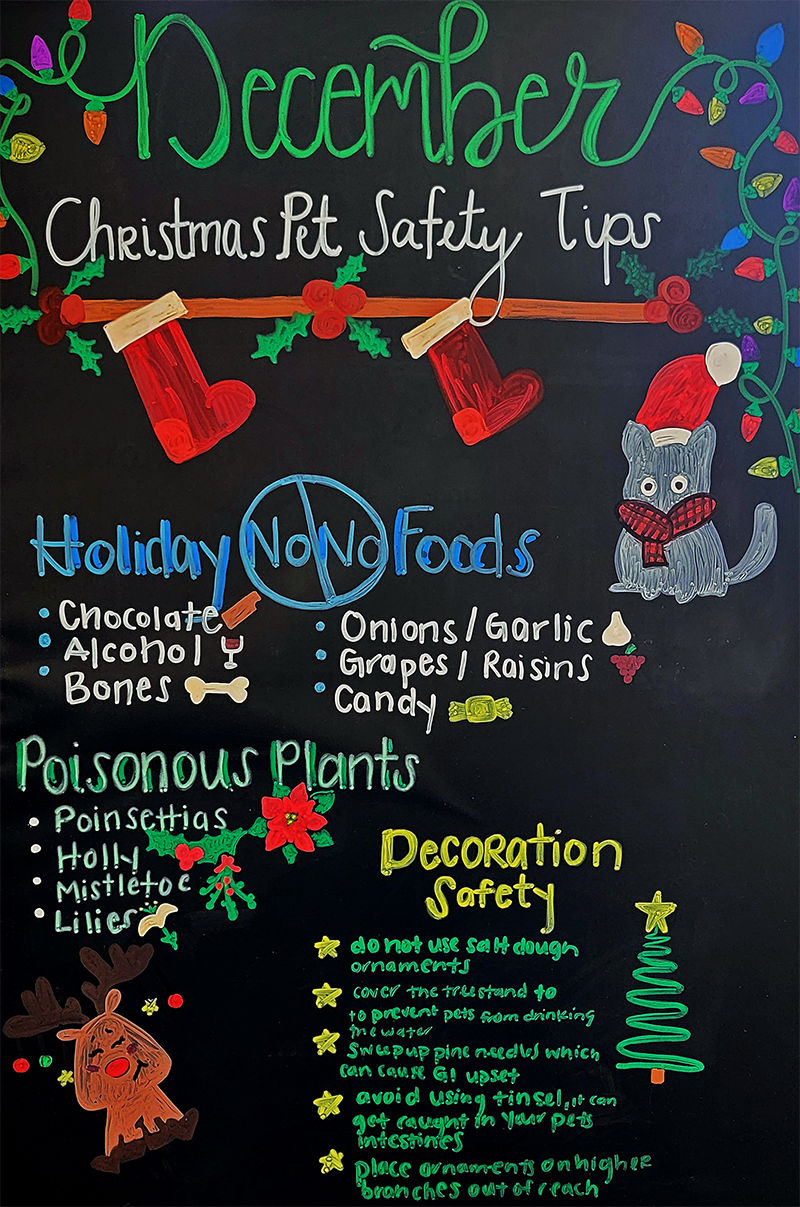 December
Christmas Pet Safety Tips
Holiday NoNo Foods
Chocolate
Alcohol
Bones
Onions/Garlic
Grapes/Raisins
Candy
Poisonous Plants
Poinsettias
Holly
Mistletoe
Lilies
Decoration
Safety
do not use salt dough
ornaments
cover the tree stand to
to prevent pets from drinking
the water
Sweep up pine needles which
can cause GI upset
avoid using tinsel, it can
get caught in your pets
intestines
place ornaments on higher
branches out of reach